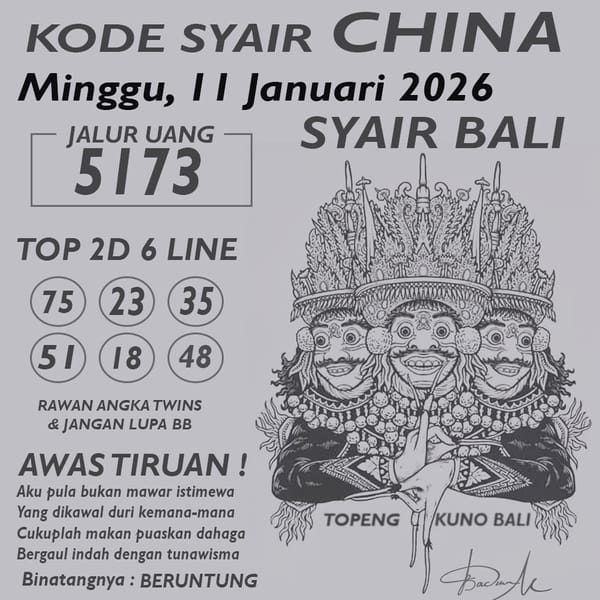 KODE SYAIR CHINA
Minggu, 11 Januari 2026
JALUR UANG
5173
SYAIR BALI
TOP 2D 6 LINE
75 23 35
51 18 48
RAWAN ANGKA TWINS
& JANGAN LUPA BB
AWAS TIRUAN !
Aku pula bukan mawar istimewa
Yang dikawal duri kemana-mana
Cukuplah makan puaskan dahaga
Bergaul indah dengan tunawisma
Binatangnya : BERUNTUNG
TOPENG KUNO BALI